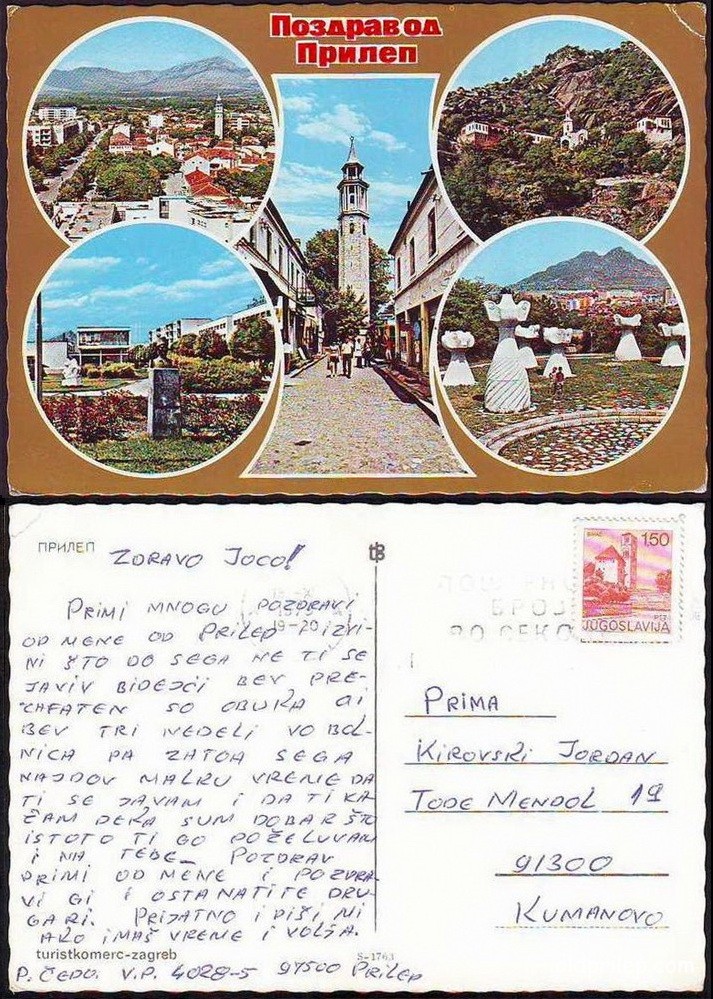 Поздрав од
Прилеп
ПРИЛЕП
ZDRAVO JOCO!
PRIMI MNOGU POZDRAVI
OD MENE OD PRILEP I IZVI-
NI ŠTO DO SEGA NE TI SE
JAVIV BIDEJĆI BEV PRE-
ZAFATEN SO OBUKA AI
BEV TRI NEDELI VO BOL-
NICA PA ZATOA SEGA
NAJDOV MALKU VREME DA
TI SE JAVAM I DA TI KA-
ŽAM DEKA SUM DOBAR ŠTO
ISTOTO TI GO POŽELUVAM
I NA TEBE. POZDRAV
PRIMI OD MENE I POZDRA-
VI GI I OSTANATITE DRU-
GARI. PRIJATNO I PIŠI MI
AKO IMAŠ VREME I VOLJA.
turistkomerc-zagreb
S-1763
P. ČEDO. V.P. 4028-5 97500 PRILEP
19-20
БРОЈ
1,50
JUGOSLAVIJA
PRIMA
KIROVSKI JORDAN
TODE MENDOL 19
91300
KUMANOVO